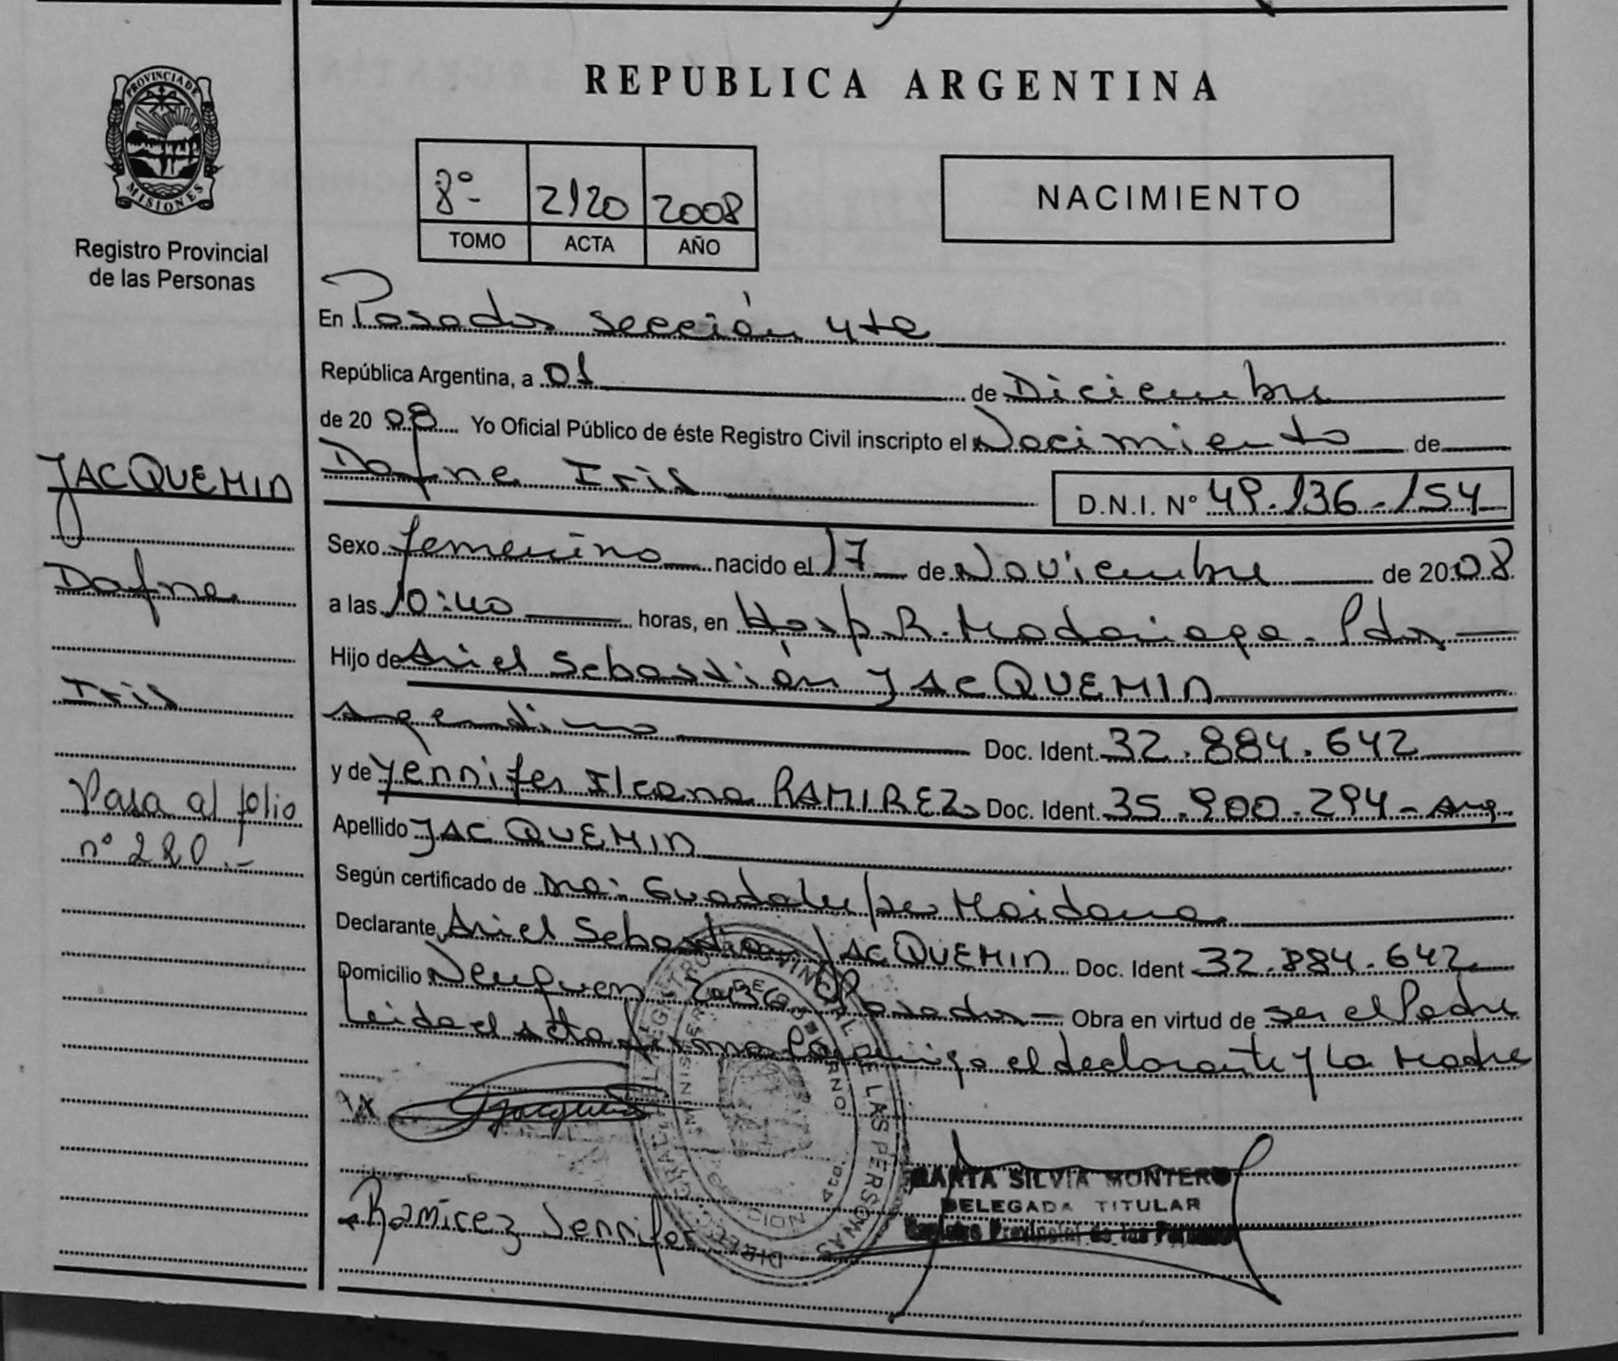 REPUBLICA ARGENTINA
PROVINCIA DE
MISIONES
Registro Provincial
de las Personas
8º- 2120 2008
TOMO ACTA AÑO
NACIMIENTO
En Posadas sección 4ta
República Argentina, a 01 de Diciembre
de 2008 Yo Oficial Público de éste Registro Civil inscripto el Nacimiento de
Dafne Iris D.N.I. Nº 49.136.154
Sexo femenino nacido el 17 de Noviembre de 2008
a las 10:40 horas, en Hosp. R. Madariaga. Pdas
Hijo de Ariel Sebastián JACQUEMIN
argentino Doc. Ident. 32.884.642
y de Yennifer Ileana RAMIREZ Doc. Ident. 35.900.294 - Arg.
Apellido JACQUEMIN
Según certificado de Guadalupe Maidana
Declarante Ariel Sebastian JACQUEMIN Doc. Ident 32.884.642
Domicilio Neuquen - Posadas Obra en virtud de ser el Padre
Leida el Acta firma conmigo el declarante y La Madre
JACQUEMIN
Dafne
Iris
Pasa al folio
nº 280.-
Ramirez Jennifer
MARTA SILVIA MONTERO
DELEGADA TITULAR
Registro Provincial de las Personas